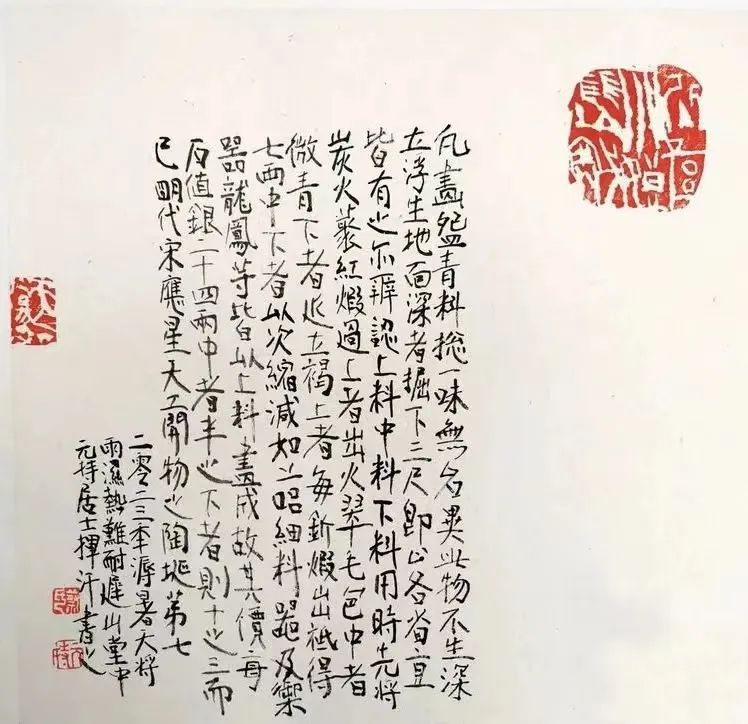 凡畫盌青料總一味無名異此物不生深
土浮生地面深者掘下三尺即止各省直
皆有之亦辨認上料中料下料用時先將
炭火叢紅煅過上者出火翠毛色中者
微青下者近土褐上者每釿煅出祗得
七兩中下者以次縮減如上品細料器及禦
器龍鳳等皆以上料畫成故其價每
石值銀二十四兩中者半之下者則十之三而
已明代宋應星天工開物之陶埏第七
二零二三年溽暑大將
雨濕熱難耐遲山堂中
元持居士揮汗書之